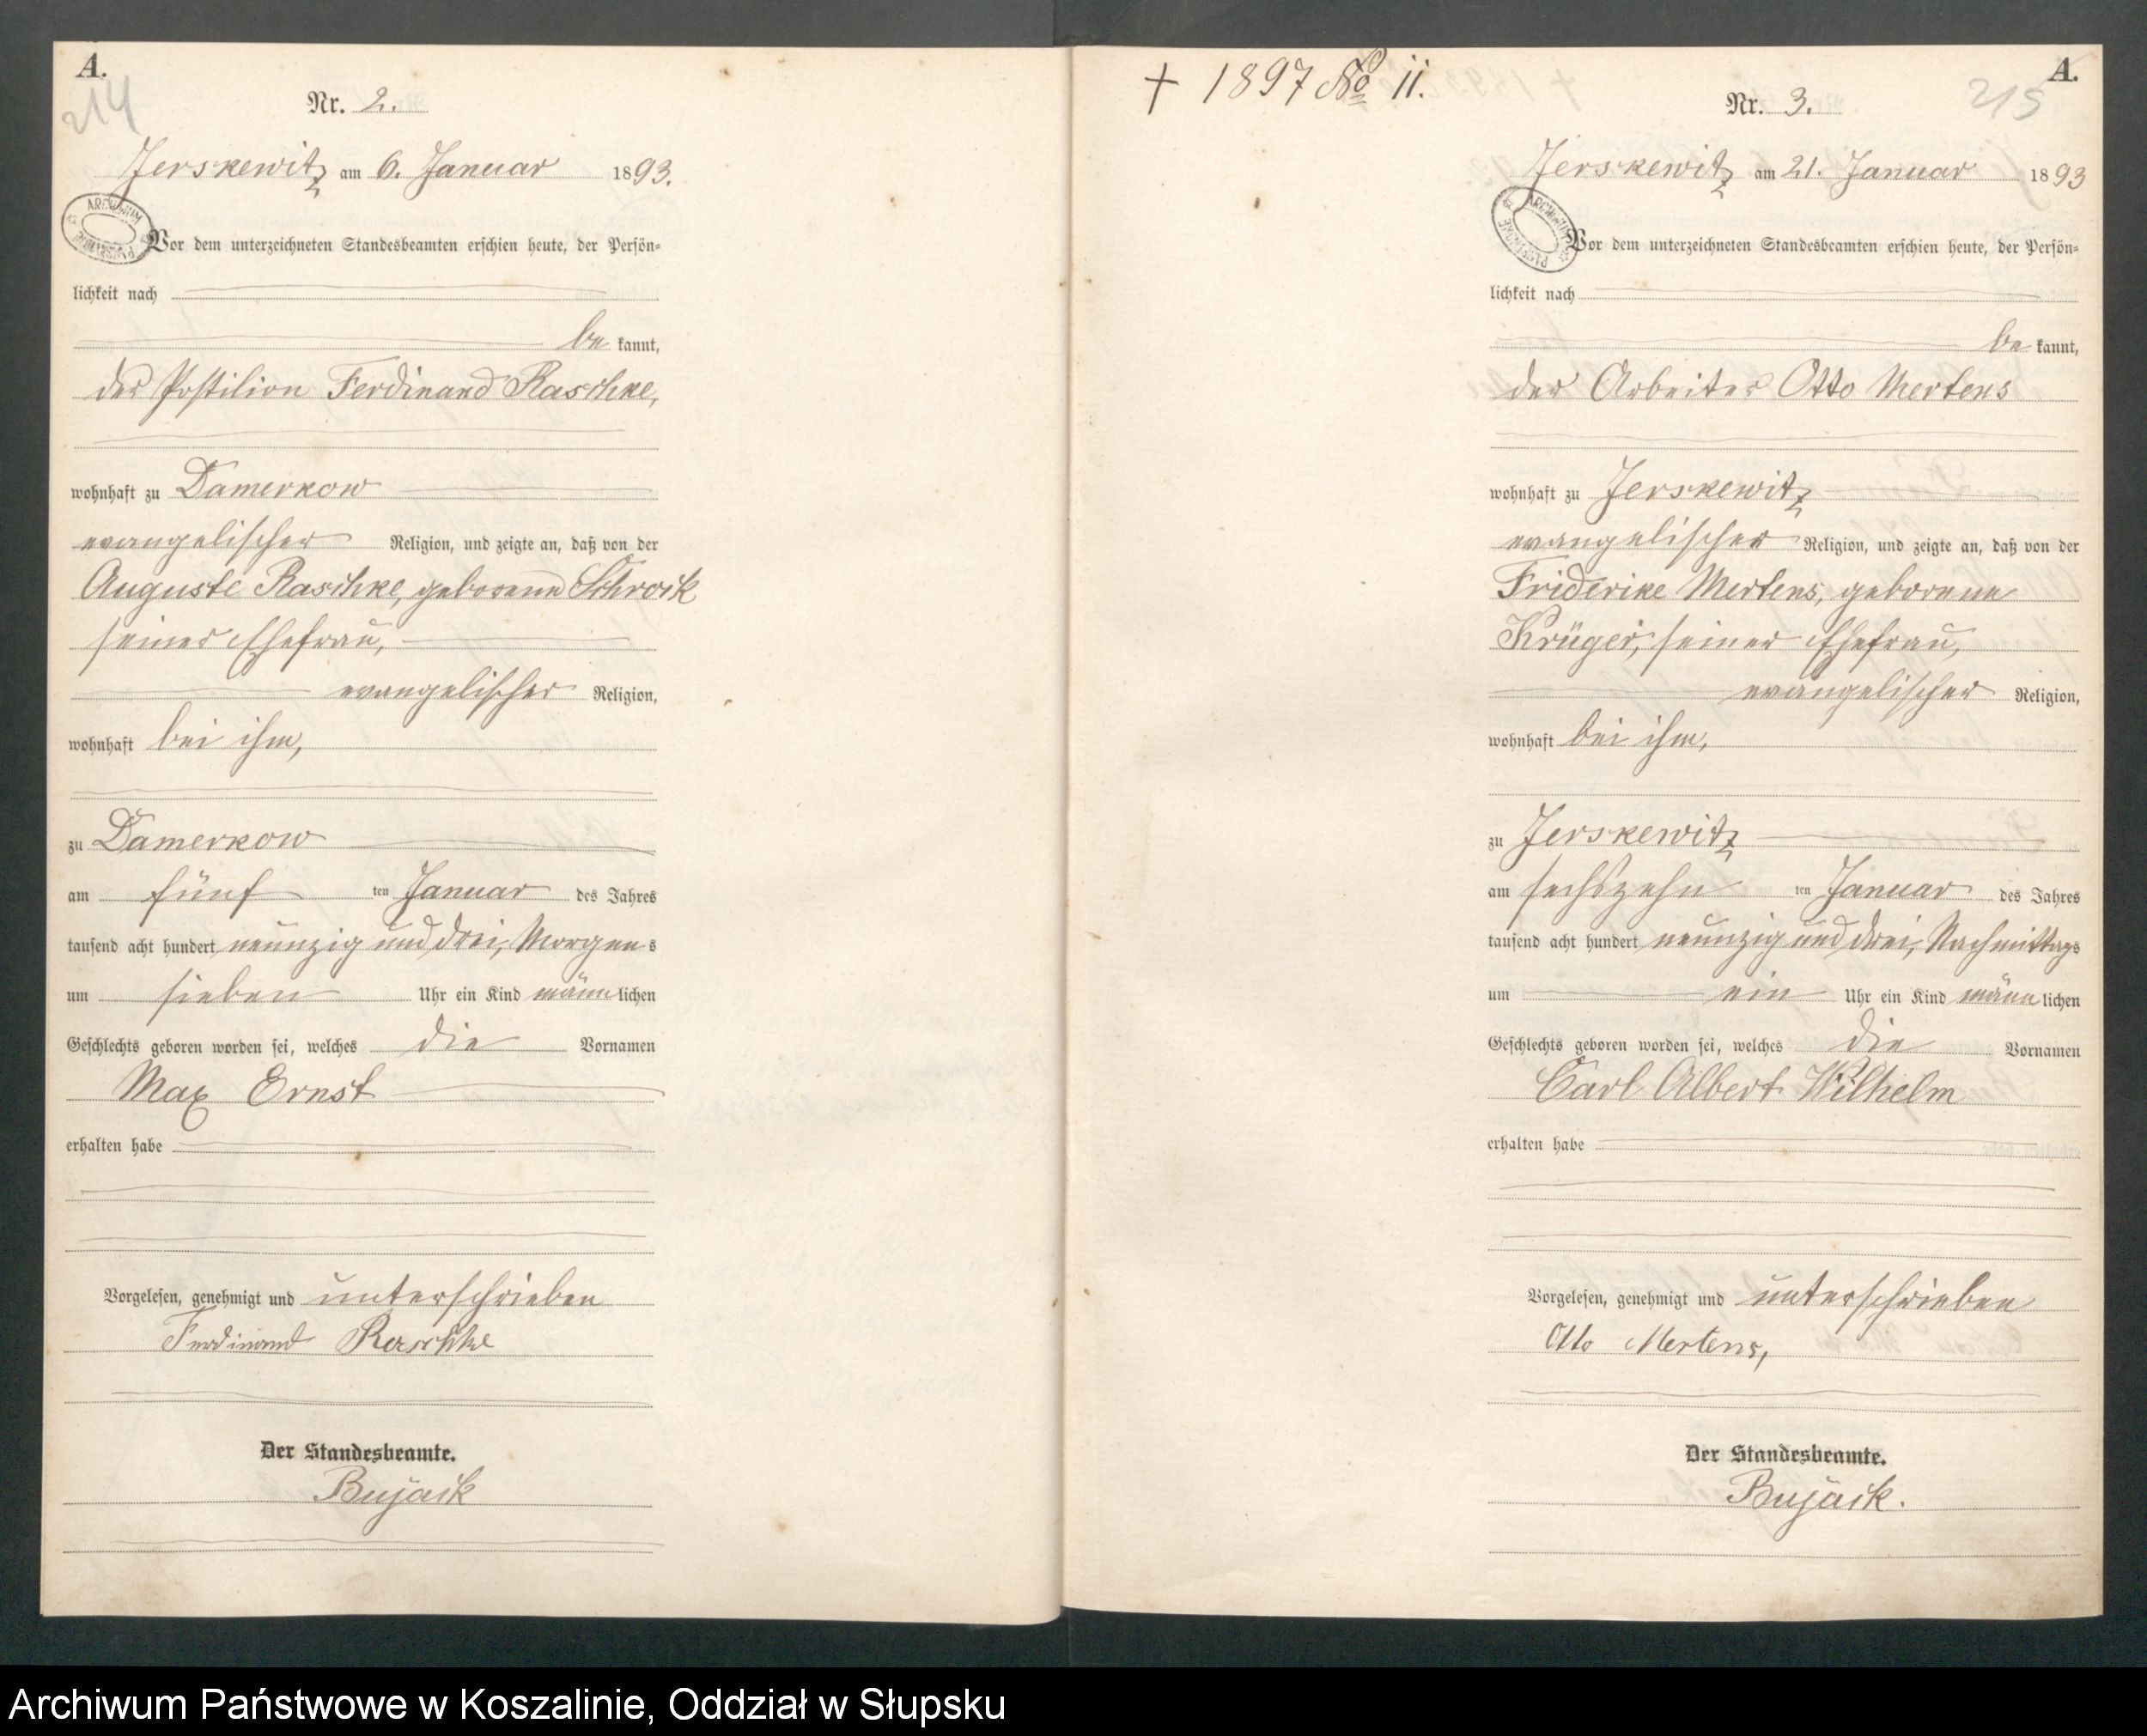 A.
214
Nr. 2.
Jerskewitz am 6. Januar 1893.
Vor dem unterzeichneten Standesbeamten erschien heute, der Persön-
lichkeit nach
be kannt,
der Postilion Ferdinand Raschke,
wohnhaft zu Damerkow
evangelischer Religion, und zeigte an, daß von der
Auguste Raschke, geborene Schrock
seiner Ehefrau,
evangelischer Religion,
wohnhaft bei ihm,
zu Damerkow
am fünf ten Januar des Jahres
tausend acht hundert neunzig und drei, Morgens
um sieben Uhr ein Kind männlichen
Geschlechts geboren worden sei, welches die Vornamen
Max Ernst
erhalten habe
Vorgelesen, genehmigt und unterschrieben
Ferdinand Raschke
Der Standesbeamte.
Bujack
† 1897 No 11.
A.
215
Nr. 3.
Jerskewitz am 21. Januar 1893
Vor dem unterzeichneten Standesbeamten erschien heute, der Persön-
lichkeit nach
be kannt,
der Arbeiter Otto Mertens
wohnhaft zu Jerskewitz
evangelischer Religion, und zeigte an, daß von der
Friderike Mertens, geborene
Krüger, seiner Ehefrau,
evangelischer Religion,
wohnhaft bei ihm,
zu Jerskewitz
am sechszehn ten Januar des Jahres
tausend acht hundert neunzig und drei, Nachmittags
um ein Uhr ein Kind männlichen
Geschlechts geboren worden sei, welches die Vornamen
Carl Albert Wilhelm
erhalten habe
Vorgelesen, genehmigt und unterschrieben
Otto Mertens,
Der Standesbeamte.
Bujack.
Archiwum Państwowe w Koszalinie, Oddział w Słupsku